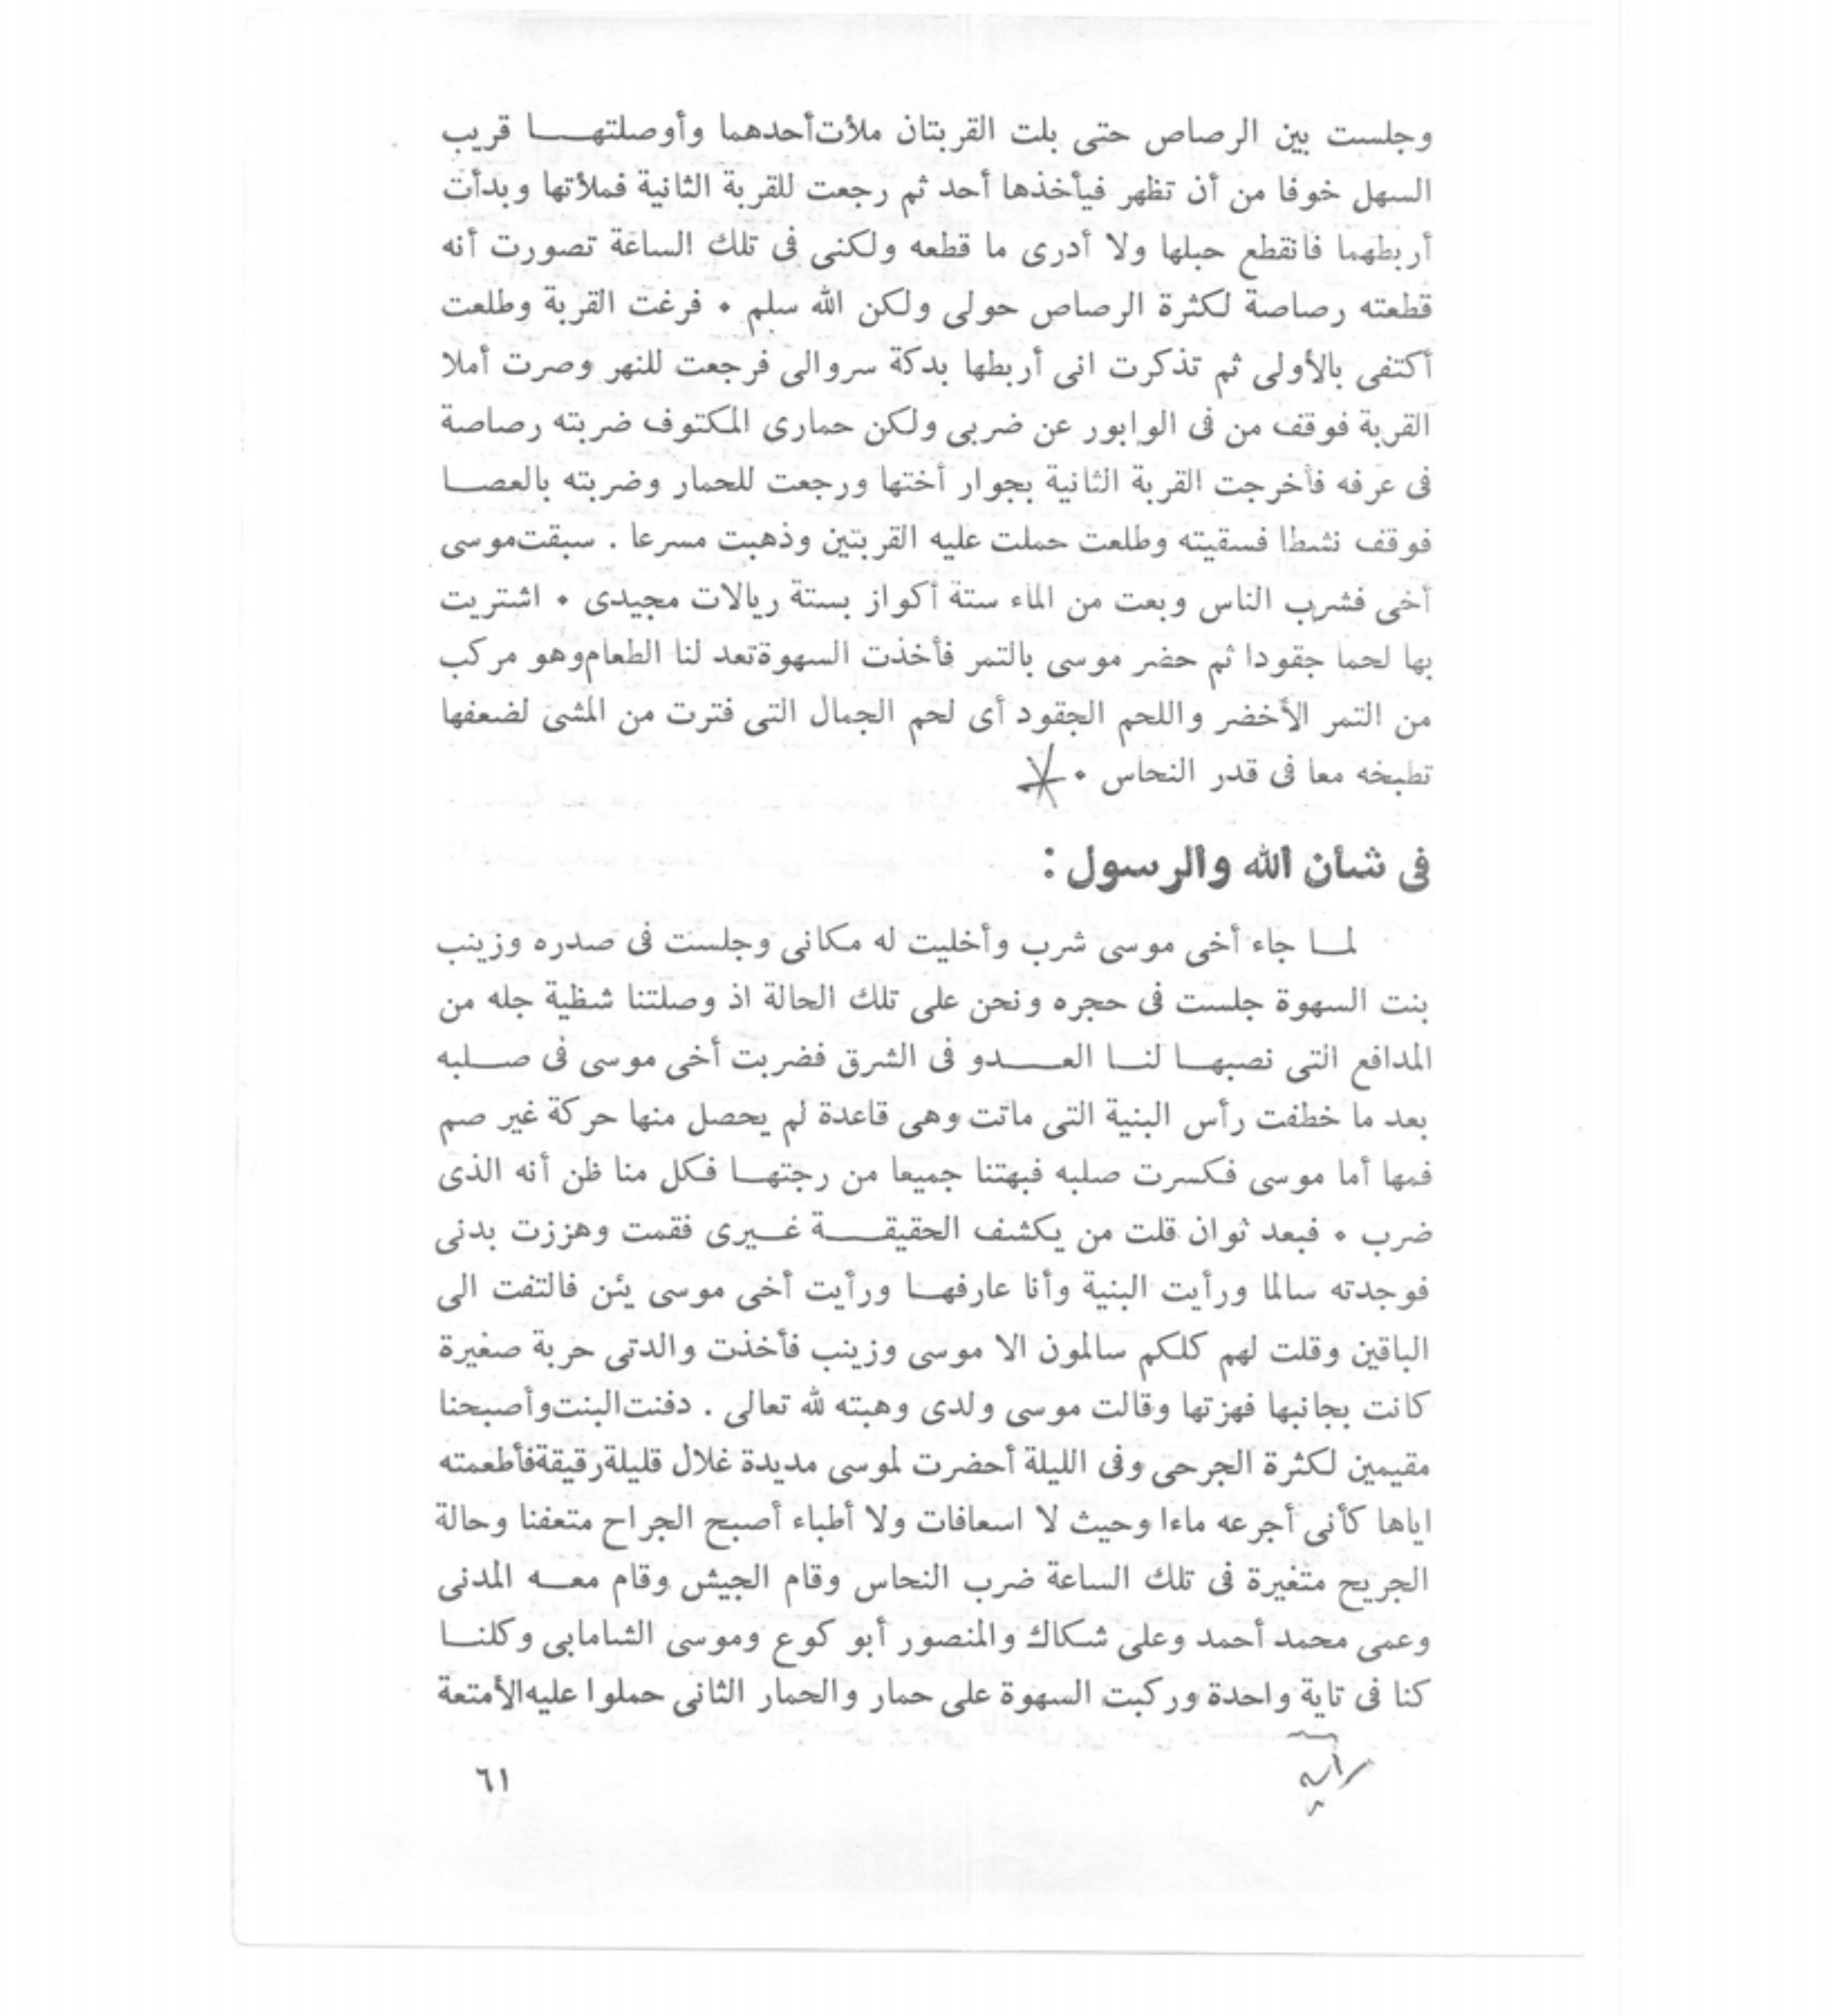 وجلست بين الرصاص حتى بلت القربتان ملأت أحدهما وأوصلتهـــا قريب
السهل خوفا من أن تظهر فيأخذها أحد ثم رجعت للقربة الثانية فملأتها وبدأت
أربطهما فانقطع حبلها ولا أدرى ما قطعه ولكنى فى تلك الساعة تصورت أنه
قطعته رصاصة لكثرة الرصاص حولى ولكن الله سلم ٠ فرغت القربة وطلعت
أكتفى بالأولى ثم تذكرت انى أربطها بدكة سروالى فرجعت للنهر وصرت أملا
القربة فوقف من فى الوابور عن ضربى ولكن حمارى المكتوف ضربته رصاصة
فى عرفه فأخرجت القربة الثانية بجوار أختها ورجعت للحمار وضربته بالعصــا
فوقف نشطا فسقيته وطلعت حملت عليه القربتين وذهبت مسرعا . سبقت موسى
أخى فشرب الناس وبعت من الماء ستة أكواز بستة ريالات مجيدى ٠ اشتريت
بها لحما جقودا ثم حضر موسى بالتمر فأخذت السهوة تعد لنا الطعام وهو مركب
من التمر الأخضر واللحم الجقود أى لحم الجمال التى فترت من المشى لضعفها
تطبخه معا فى قدر النحاس ٠
فى شأن الله والرسول :
لمــا جاء أخى موسى شرب وأخليت له مكانى وجلست فى صدره وزينب
بنت السهوة جلست فى حجره ونحن على تلك الحالة اذ وصلتنا شظية جله من
المدافع التى نصبهــا لنــا العـــدو فى الشرق فضربت أخى موسى فى صــلبه
بعد ما خطفت رأس البنية التى ماتت وهى قاعدة لم يحصل منها حركة غير صم
فمها أما موسى فكسرت صلبه فبهتنا جميعا من رجتهــا فكل منا ظن أنه الذى
ضرب ٠ فبعد ثوان قلت من يكشف الحقيقــــة غــيرى فقمت وهززت بدنى
فوجدته سالما ورأيت البنية وأنا عارفهــا ورأيت أخى موسى يئن فالتفت الى
الباقين وقلت لهم كلكم سالمون الا موسى وزينب فأخذت والدتى حربة صغيرة
كانت بجانبها فهزتها وقالت موسى ولدى وهبته لله تعالى . دفنت البنت وأصبحنا
مقيمين لكثرة الجرحى وفى الليلة أحضرت لموسى مديدة غلال قليلة رقيقة فأطعمته
اياها كأنى أجرعه ماءا وحيث لا اسعافات ولا أطباء أصبح الجراح متعفنا وحالة
الجريح متغيرة فى تلك الساعة ضرب النحاس وقام الجيش وقام معــه المدنى
وعمى محمد أحمد وعلى شكاك والمنصور أبو كوع وموسى الشامابى وكلنــا
كنا فى تاية واحدة وركبت السهوة على حمار والحمار الثانى حملوا عليه الأمتعة
٦١